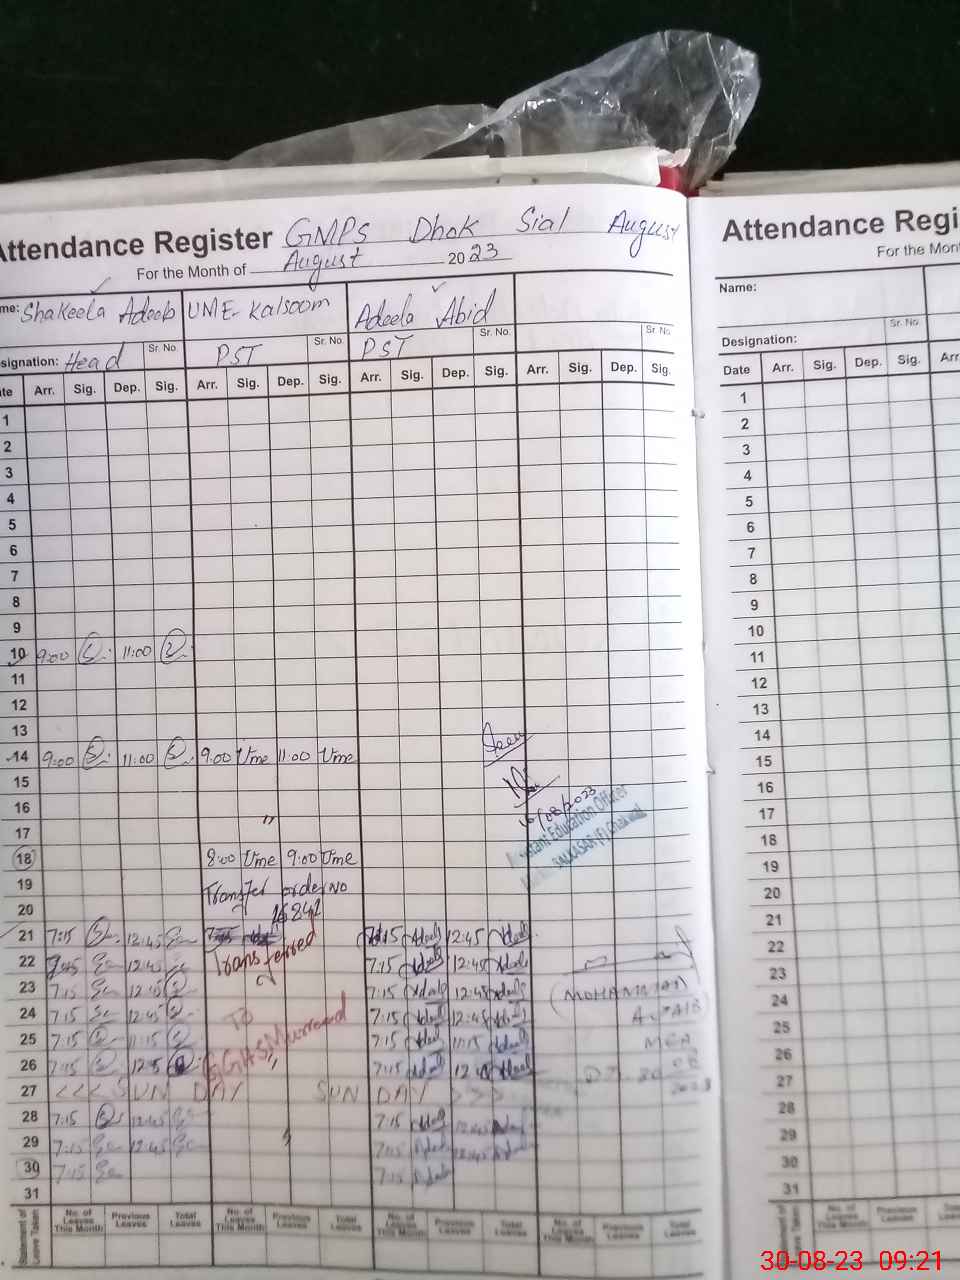 Attendance Register GMPS Dhok Sial August
For the Month of August 2023
Shakeela Adeeb UME-Kalsoom Adeela Abid
Sr. No. Sr. No. Sr. No. Sr. No.
Designation: Head PST PST
Date Arr. Sig. Dep. Sig. Arr. Sig. Dep. Sig. Arr. Sig. Dep. Sig. Arr. Sig. Dep. Sig.
1
2
3
4
5
6
7
8
9
10 9:00 11:00
11
12
13
14 9:00 11:00 9:00 Ume 11:00 Ume
15
16
17
18 8:00 Ume 9:00 Ume
19 Transfer order No
20 16241
21 7:15 12:45 7:15 Adeela 12:45 Adeela
22 7:15 12:45 Transferred 7:15 Adeela 12:45 Adeela
23 7:15 12:45 7:15 Adeela 12:45 Adeela
24 7:15 12:45 To 7:15 Adeela 12:45 Adeela
25 7:15 11:15 GGHS Mureed 7:15 Adeela 11:15 Adeela
26 7:15 7:15 Adeela Adeela
27 <<< SUN DAY SUN DAY >>>
28 7:15 12:45 7:15 Adeela 12:45
29 7:15 12:45 7:15 Adeela 12:45 Adeela
30 7:15 7:15 Adeela
31
Statement of Leave Taken No. of Leaves This Month Previous Leaves Total Leaves No. of Leaves This Month Previous Leaves Total Leaves No. of Leaves This Month Previous Leaves Total Leaves No. of Leaves This Month Previous Leaves Total Leaves
Seen
16/08/2023
Assistant Education Officer
BALKASAR (F) Chakwal
(MOHAMMAD
AFTAB)
MEA
Attendance
For the
Name:
Sr. No.
Designation:
Date Arr. Sig. Dep. Sig.
1
2
3
4
5
6
7
8
9
10
11
12
13
14
15
16
17
18
19
20
21
22
23
24
25
26
27
28
29
30
31
No. of Leaves This Month Previous Leaves
30-08-23 09:21